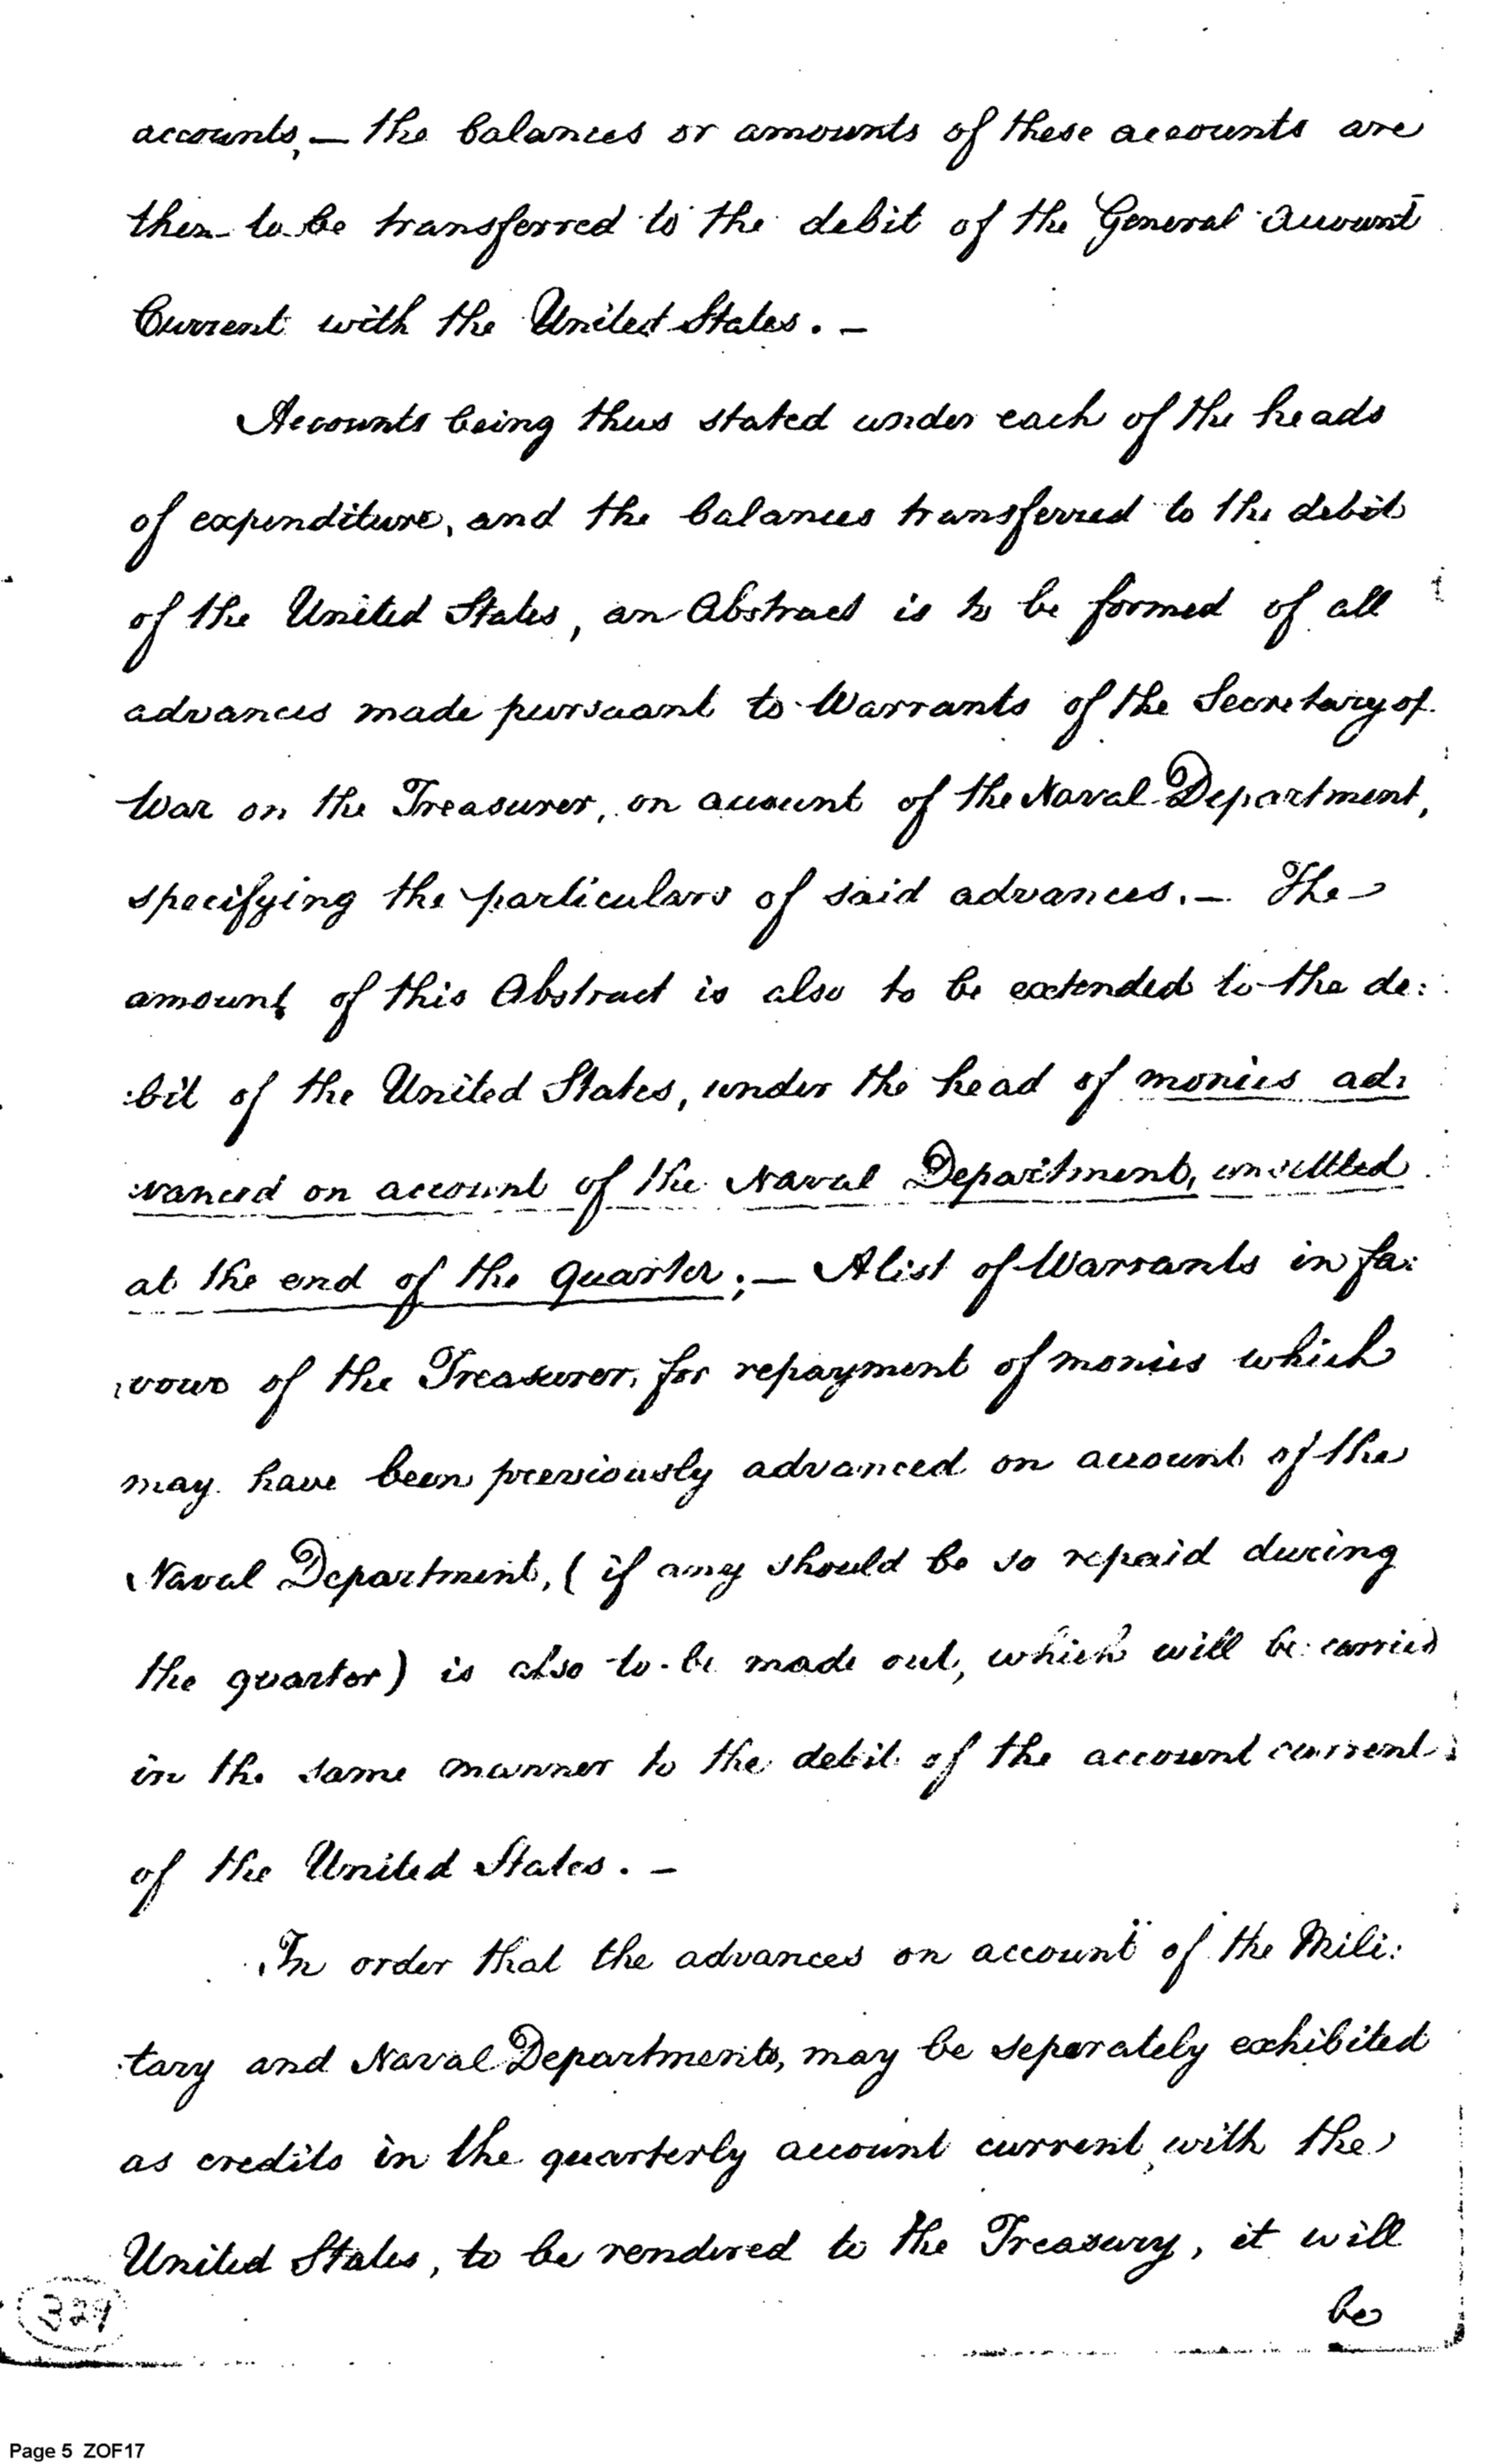 accounts, — the balances or amounts of these accounts are
then to be transferred to the debit of the General Account
Current with the United States. —
Accounts being thus stated under each of the heads
of expenditure, and the balances transferred to the debit
of the United States, an Abstract is to be formed of all
advances made pursuant to Warrants of the Secretary of
War on the Treasurer, on account of the Naval Department,
specifying the particulars of said advances. — The
amount of this Abstract is also to be extended to the de:
:bit of the United States, under the head of monies ad:
:vanced on account of the Naval Department, unsettled
at the end of the quarter; — A list of Warrants in fa:
:vour of the Treasurer, for repayment of monies which
may have been previously advanced on account of the
Naval Department, (if any should be so repaid during
the quarter) is also to be made out, which will be carried
in the same manner to the debit of the account current
of the United States. —
In order that the advances on account of the Mili:
:tary and Naval Departments, may be separately exhibited
as credits in the quarterly account current, with the
United States, to be rendered to the Treasury, it will
be
329
Page 5 ZOF17